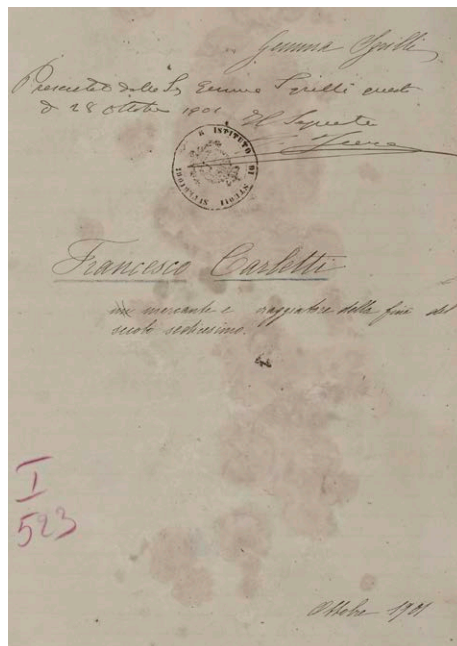 Gemma Sgrilli
Presentata dalla Sg. Gemma Sgrilli questo
d 28 ottobre 1901 Il Segreta
R ISTITUTO DI STUDI SUPERIORI
Francesco Carletti
mercante e viaggiatore della fine del
secolo sedicesimo.
I
523
Ottobre 1901